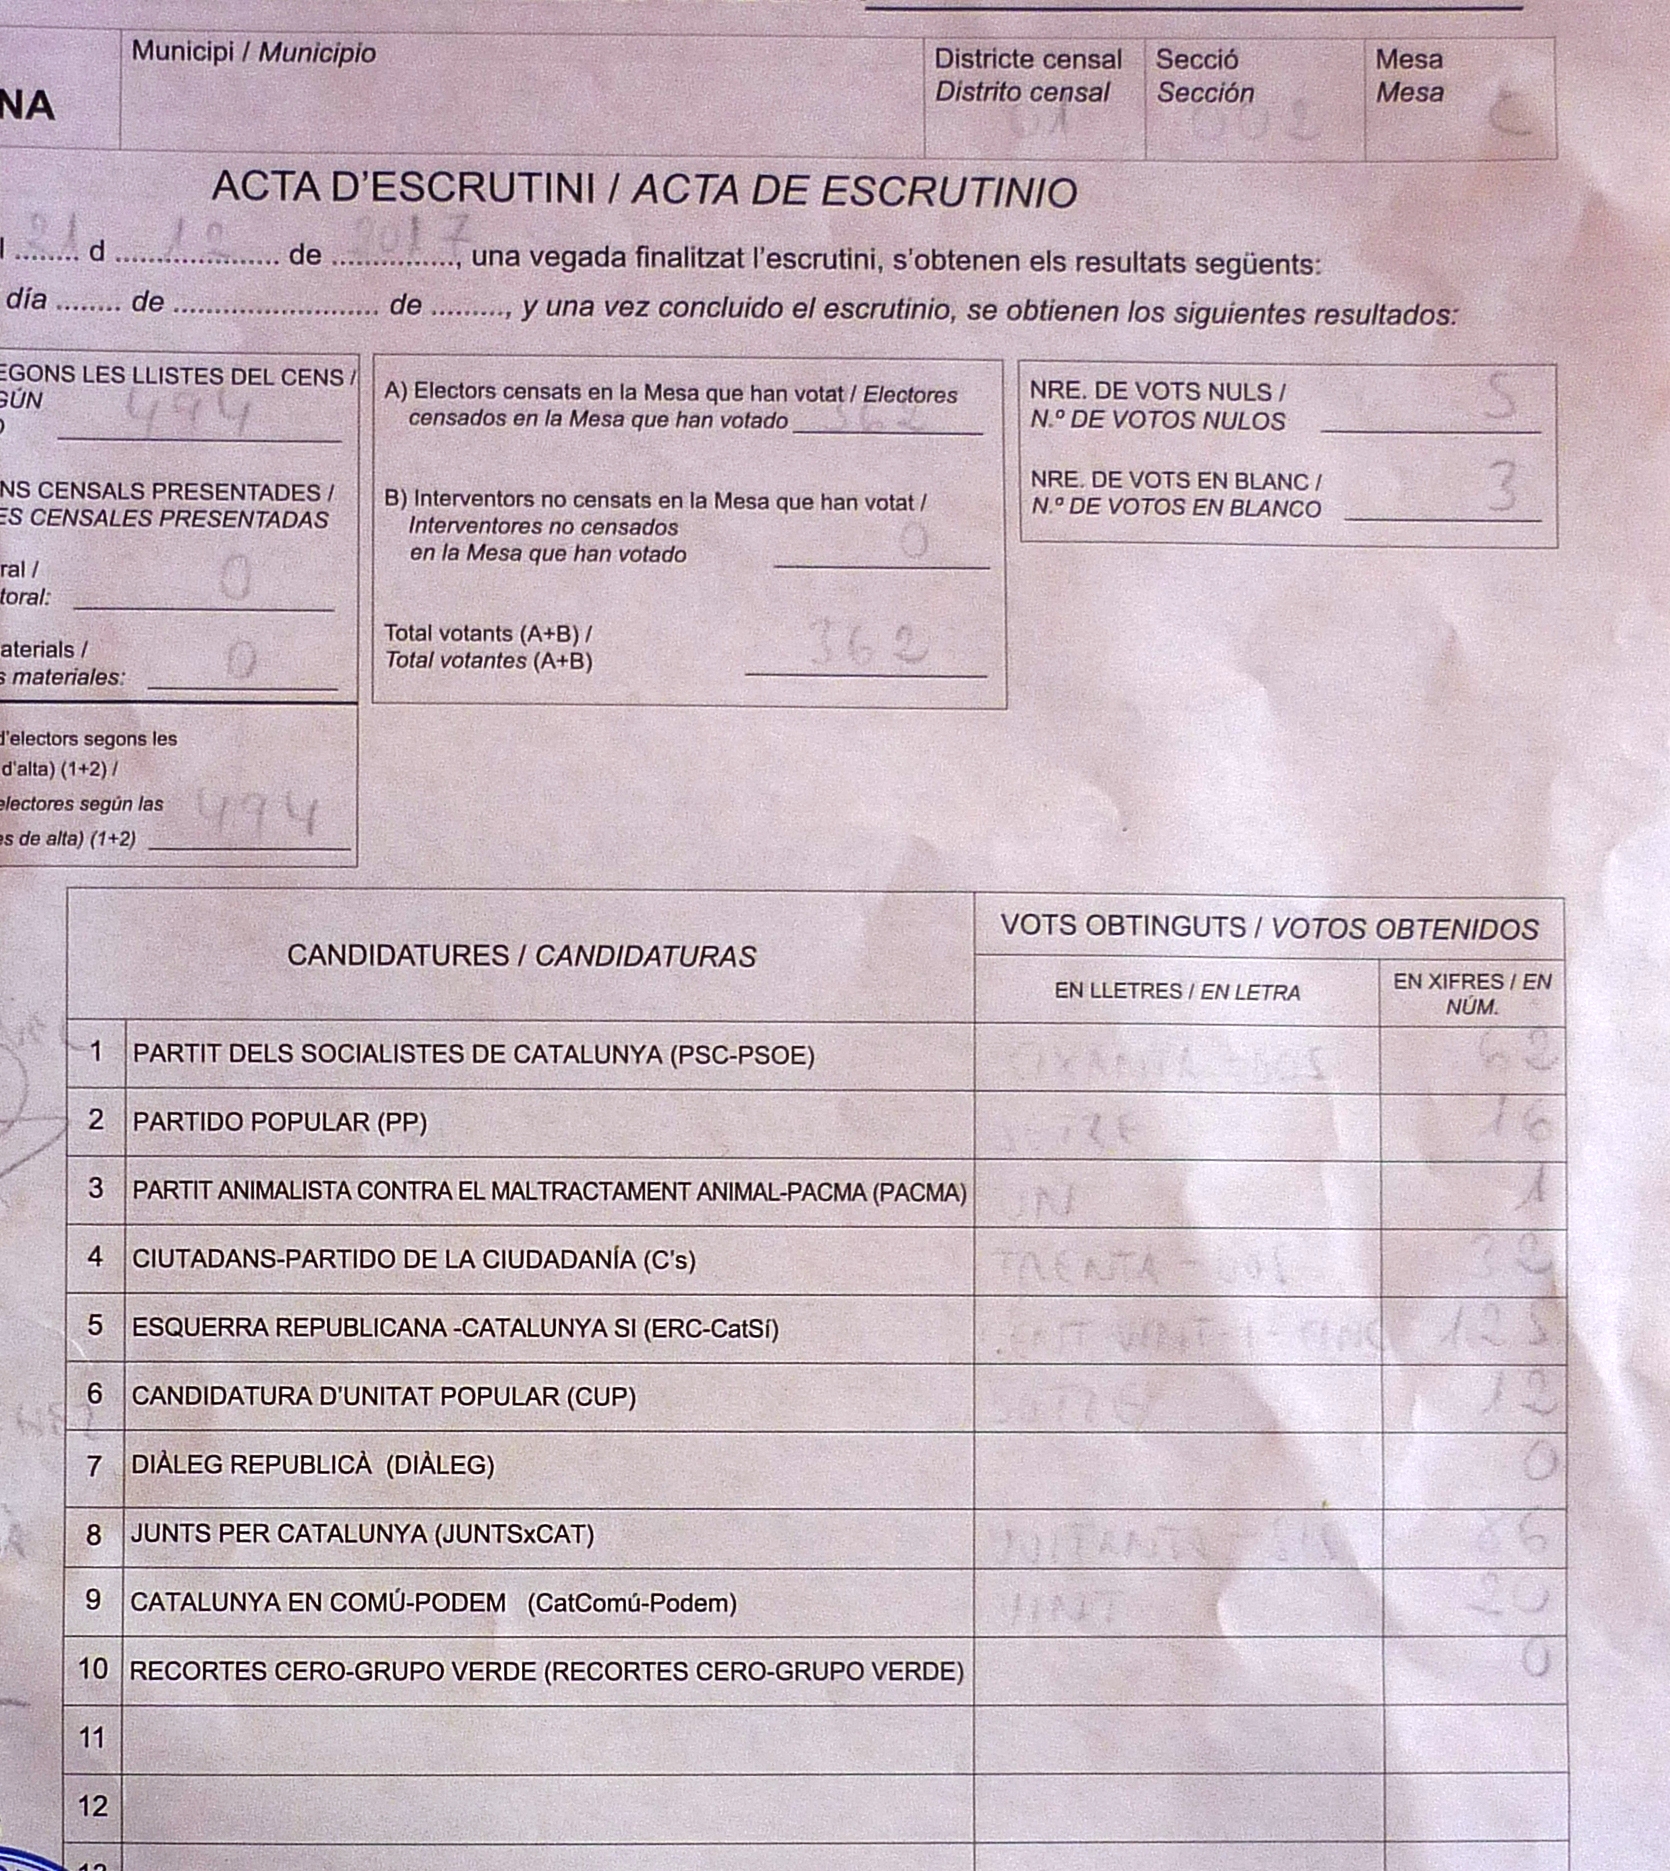 NA
Municipi / Municipio
Districte censal
Distrito censal
01
Secció
Sección
002
Mesa
Mesa
C
ACTA D'ESCRUTINI / ACTA DE ESCRUTINIO
l 21 d 12 de 2017, una vegada finalitzat l'escrutini, s'obtenen els resultats següents:
día ........ de .......................... de ........., y una vez concluido el escrutinio, se obtienen los siguientes resultados:
EGONS LES LLISTES DEL CENS /
GÚN
494
NS CENSALS PRESENTADES /
ES CENSALES PRESENTADAS
ral /
toral: 0
aterials /
s materiales: 0
d'electors segons les
d'alta) (1+2) /
electores según las
es de alta) (1+2) 494
A) Electors censats en la Mesa que han votat / Electores
censados en la Mesa que han votado 362
B) Interventors no censats en la Mesa que han votat /
Interventores no censados
en la Mesa que han votado 0
Total votants (A+B) /
Total votantes (A+B) 362
NRE. DE VOTS NULS /
N.º DE VOTOS NULOS 5
NRE. DE VOTS EN BLANC /
N.º DE VOTOS EN BLANCO 3
CANDIDATURES / CANDIDATURAS
VOTS OBTINGUTS / VOTOS OBTENIDOS
EN LLETRES / EN LETRA
EN XIFRES / EN
NÚM.
1 PARTIT DELS SOCIALISTES DE CATALUNYA (PSC-PSOE) 62
2 PARTIDO POPULAR (PP) SETZE 16
3 PARTIT ANIMALISTA CONTRA EL MALTRACTAMENT ANIMAL-PACMA (PACMA) UN 1
4 CIUTADANS-PARTIDO DE LA CIUDADANÍA (C's) TRENTA-DOS 32
5 ESQUERRA REPUBLICANA -CATALUNYA SI (ERC-CatSí) 125
6 CANDIDATURA D'UNITAT POPULAR (CUP) DOTZE 12
7 DIÀLEG REPUBLICÀ (DIÀLEG) 0
8 JUNTS PER CATALUNYA (JUNTSxCAT) VUITANTA SIS 86
9 CATALUNYA EN COMÚ-PODEM (CatComú-Podem) VINT 20
10 RECORTES CERO-GRUPO VERDE (RECORTES CERO-GRUPO VERDE) 0
11
12